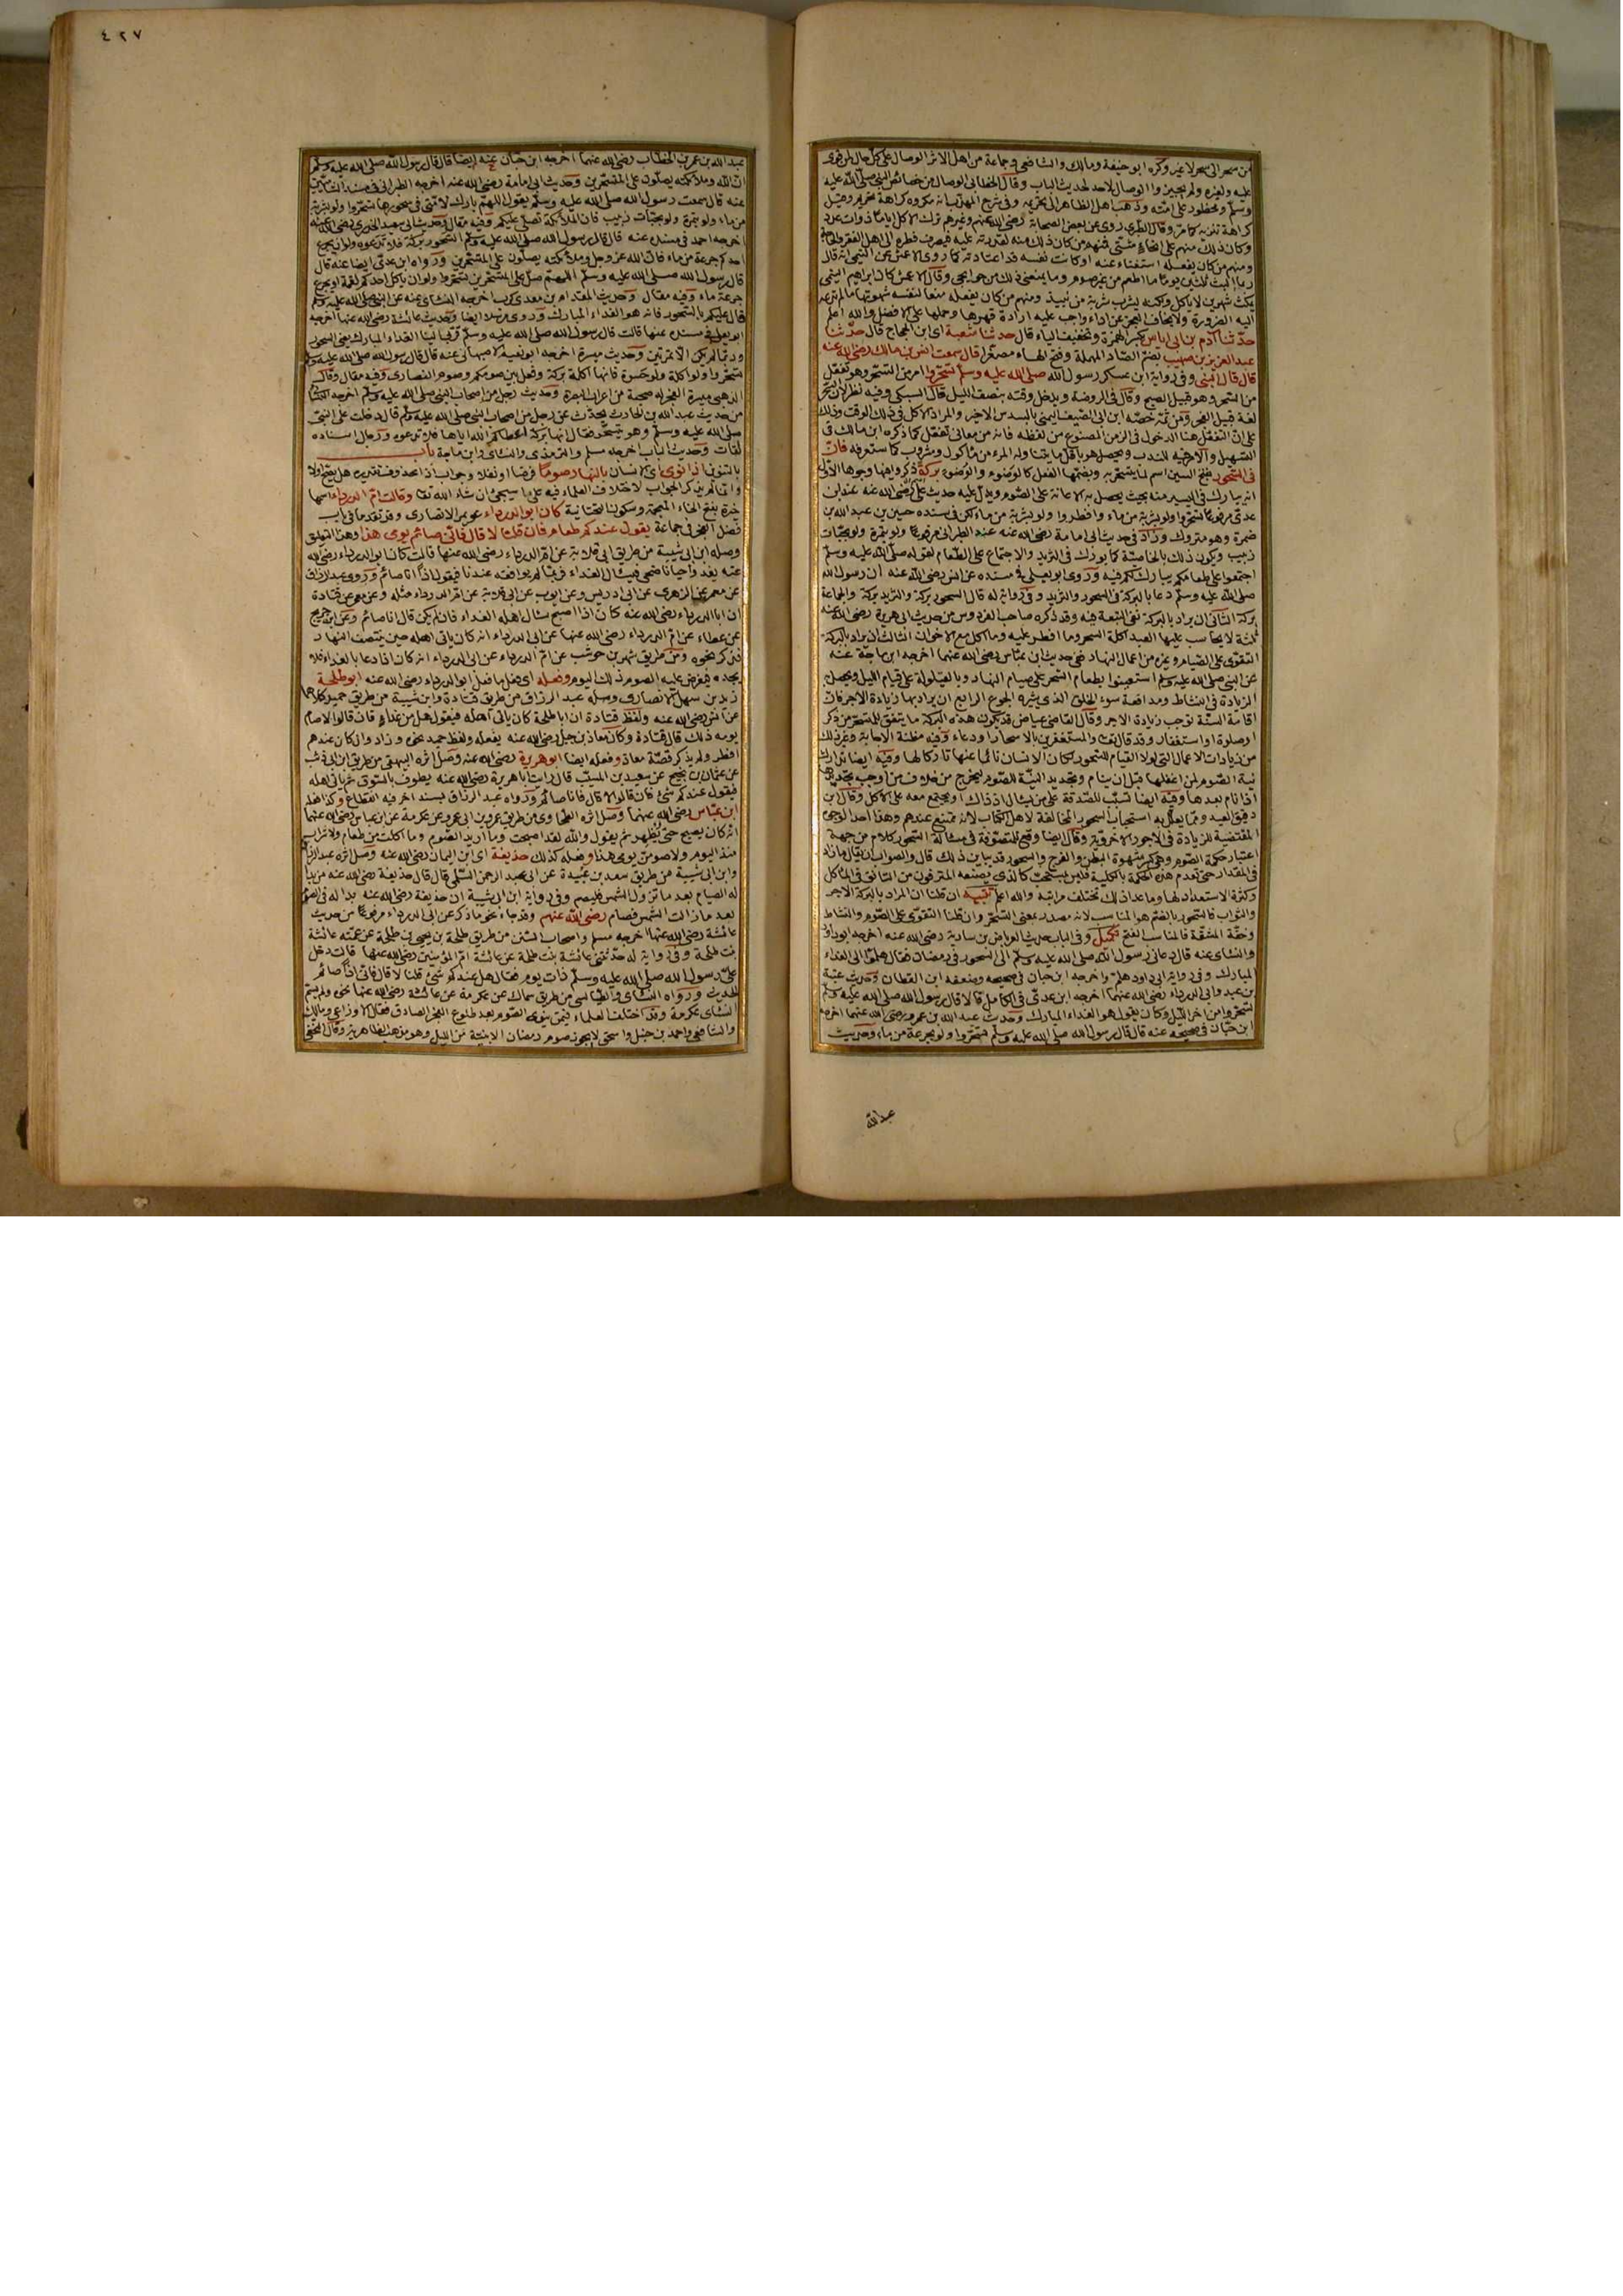 من سحر الى سحر لا غير وكره ابو حنيفة ومالك والشافعي وجماعة من اهل الاثر الوصال على كل حال لمن قوى
عليه ولغيره ولم يجيزوا الوصال لاحد لحديث الباب وقال الخطابي الوصال من خصائص النبي صلى الله عليه
وسلم ومحظور على امته وذهب اهل الظاهر الى تحريمه وفي شرح المهذب انه مكروه كراهة تحريم وقيل
كراهة تنزيه كما مر وقال الطبري روى عن بعض الصحابة رضي الله عنهم وغيرهم ترك الاكل اياما ذوات عدد
وكان ذلك منهم على انحاء شتى فمنهم من كان ذلك منه لقدرته عليه فيصرف فطره الى اهل الفقر والحاجة
ومنهم من كان يفعله استغناء عنه او كانت نفسه قد اعتادته كما روى الاعمش عن التيمي انه قال
ربما البث ثلثين يوما ما اطعم من غير صوم وما يمنعني ذلك من حوائجي وقال الاعمش كان ابراهيم التيمي
يمكث شهرين لا ياكل ولكنه يشرب شربة من نبيذ ومنهم من كان يفعله منعا لنفسه شهوتها ما لم تدعه
اليه الضرورة ولا يخاف العجز عن اداء واجب عليه ارادة قهرها وحملها على الافضل والله اعلم
حدثنا آدم بن ابي اياس بكسر الهمزة وتخفيف الياء قال حدثنا شعبة اى ابن الحجاج قال حدثنا
عبد العزيز بن صهيب بضم الصاد المهملة وفتح الهاء مصغرا قال سمعت انس بن مالك رضي الله عنه
قال قال النبي وفي رواية ابن عساكر رسول الله صلى الله عليه وسلم تسحروا امر من التسحر وهو تفعل
من السحر وهو قبيل الصبح وقال في الروضة ويدخل وقته بنصف الليل قال السبكي وفيه نظر لان السحر
لغة قبيل الفجر ومن ثمه خصه ابن ابي الصيف اليمني بالسدس الاخير والمراد الاكل في ذلك الوقت وذلك
على ان التفعل هنا الدخول في الزمن المصنوع من لفظه فانه من معاني تفعل كما ذكره ابن مالك في
التسهيل والامر فيه للندب ويحصل هو باقل ما يتناوله المرء من مأكول ومشروب كما ستعرفه فان
في السحور بفتح السين اسم لما يتسحر به وبضمها الفعل كالوضوء والوضوء بركة ذكروا فيها وجوها الاول
انه يبارك في اليسير منه بحيث يحصل به الاعانة على الصوم ويدل عليه حديث علي رضي الله عنه عند ابن
عدي مرفوعا تسحروا ولو بشربة من ماء وافطروا ولو بشربة من ماء لكن في سنده حسين بن عبد الله بن
ضمرة وهو متروك وزاد في حديث ابي امامة رضي الله عنه عند الطبراني مرفوعا ولو بتمرة ولو بحبات
زبيب ويكون ذلك بالخاصة كما بورك في الثريد والاجتماع على الطعام لقوله صلى الله عليه وسلم
اجتمعوا على طعامكم يبارك لكم فيه وروى ابو يعلى في مسنده عن انس رضي الله عنه ان رسول الله
صلى الله عليه وسلم دعا بالبركة في السحور والثريد وفي رواية له قال السحور بركة والثريد بركة والجماعة
بركة الثاني ان يراد بالبركة نفي التبعة فيه وقد ذكره صاحب الفردوس من حديث ابي هريرة رضي الله عنه
ثلثة لا يحاسب عليها العبد اكلة السحر وما افطر عليه وما اكل مع الاخوان الثالث ان يراد بالبركة
التقوى على الصيام وغيره من اعمال النهار ففي حديث ابن عباس رضي الله عنهما اخرجه ابن ماجة عنه
عن النبي صلى الله عليه وسلم استعينوا بطعام السحر على صيام النهار وبالقيلولة على قيام الليل ويحصل به
الزيادة في النشاط ومدافعة سوء الخلق الذي يثيره الجوع الرابع ان يراد بها زيادة الاجر فان
اقامة السنة توجب زيادة الاجر وقال القاضي عياض قد يكون هذه البركة ما يتفق للمتسحر من ذكر
او صلوة او استغفار وقد قال تعالى والمستغفرين بالاسحار او دعاء وفيه مظنة الاجابة وغير ذلك
من زيادات الاعمال التي لولا القيام للسحور لكان الانسان نائما عنها تاركا لها وفيه ايضا تدارك
نية الصوم لمن اغفلها قبل ان ينام وتجديد النية للصوم ليخرج من خلاف من اوجب تجديدها
اذا نام بعدها وفيه ايضا تسبب للصدقة على من يسأل اذ ذاك او يجتمع معه على الاكل وقال ابن
دقيق العيد ومما يعلل به استحباب السحور المخالفة لاهل الكتاب لانه ممتنع عندهم وهذا احد الوجوه
المقتضية للزيادة في الاجور الاخروية وقال ايضا وقع للمتصوفة في مسألة السحور كلام من جهة
اعتبار حكمة الصوم وهي كسر شهوة البطن والفرج والسحور قد يباين ذلك قال والصواب ان يقال ما زاد
في المقدار حتى تعدم هذه الحكمة بالكلية فليس بمستحب كالذي يصنعه المترفون من التانق في المآكل
وكثرة الاستعداد لها وما عدا ذلك تختلف مراتبه والله اعلم تنبيه ان قلنا ان المراد بالبركة الاجر
والثواب فالسحور بالضم هو المناسب لانه مصدر بمعنى التسحر وان قلنا التقوى على الصوم والنشاط
وخفة المشقة فالمناسب الفتح تكميل وفي الباب حديث العرباض بن سارية رضي الله عنه اخرجه ابو داود
والنسائي عنه قال دعاني رسول الله صلى الله عليه وسلم الى السحور في رمضان فقال هلم الى الغداء
المبارك وفي رواية ابي داود هلم واخرجه ابن حبان في صحيحه وضعفه ابن القطان وحديث عتبة
بن عبد وابي الدرداء رضي الله عنهما اخرجه ابن عدي في الكامل قالا قال رسول الله صلى الله عليه وسلم
تسحروا من آخر الليل وكان يقول هو الغداء المبارك وحديث عبد الله بن عمرو رضي الله عنهما اخرجه
ابن حبان في صحيحه عنه قال قال رسول الله صلى الله عليه وسلم تسحروا ولو بجرعة من ماء وحديث
عبد الله
٤٢٧
عبد الله بن عمر بن الخطاب رضي الله عنهما اخرجه ابن حبان عنه ايضا قال قال رسول الله صلى الله عليه وسلم
ان الله وملائكته يصلون على المتسحرين وحديث ابي امامة رضي الله عنه اخرجه الطبراني في مسند الشاميين
عنه قال سمعت رسول الله صلى الله عليه وسلم يقول اللهم بارك لامتي في سحورها تسحروا ولو بشربة
من ماء ولو بتمرة ولو بحبات زبيب فان الملائكة تصلي عليكم وفيه مقال وحديث ابي سعيد الخدري رضي الله عنه
اخرجه احمد في مسنده عنه قال قال رسول الله صلى الله عليه وسلم السحور بركة فلا تدعوه ولو ان يجرع
احدكم جرعة من ماء فان الله عز وجل وملائكته يصلون على المتسحرين ورواه ابن عدي ايضا عنه قال
قال رسول الله صلى الله عليه وسلم اللهم صل على المتسحرين تسحروا ولو ان ياكل احدكم لقمة او يجرع
جرعة ماء وفيه مقال وحديث المقدام بن معدي كرب اخرجه النسائي عنه عن النبي صلى الله عليه وسلم
قال عليكم بالسحور فانه هو الغداء المبارك وروى مرسلا ايضا وحديث عائشة رضي الله عنها اخرجه
ابو يعلى في مسنده عنها قالت قال رسول الله صلى الله عليه وسلم قربي الينا الغداء المبارك يعني السحور
وربما لم يكن الا تمرتين وحديث ميسرة اخرجه ابو نعيم الاصبهاني عنه قال قال رسول الله صلى الله عليه وسلم
تسحروا ولو اكلة ولو حسوة فانها اكلة بركة وفصل بين صومكم وصوم النصارى وفيه مقال وقال
الذهبي ميسرة الفجر له صحبة من اعراب البصرة وحديث رجل من اصحاب النبي صلى الله عليه وسلم اخرجه النسائي
من حديث عبد الله بن الحارث يحدث عن رجل من اصحاب النبي صلى الله عليه وسلم قال دخلت على النبي
صلى الله عليه وسلم وهو يتسحر فقال انها بركة اعطاكم الله اياها فلا تدعوه ورجال اسناده
ثقات وحديث الباب اخرجه مسلم والترمذي والنسائي وابن ماجة باب
بالتنوين اذا نوى اى الانسان بالنهار صوما فرضا او نفلا وجواب اذا محذوف تقديره هل يصح اولا
وانما لم يذكر الجواب لاختلاف العلماء فيه على ما سيجئ ان شاء الله تعالى وقالت ام الدرداء اسمها
خيرة بفتح الخاء المعجمة وسكون التحتانية كان ابو الدرداء عويمر الانصاري وقد تقدما في باب
فضل الفجر في جماعة يقول عندكم طعام فان قلنا لا قال فاني صائم يومى هذا وهذا التعليق
وصله ابن ابي شيبة من طريق ابي قلابة عن ام الدرداء رضي الله عنها قالت كان ابو الدرداء رضي الله
عنه يغدو احيانا ضحى فيسال الغداء فربما لم يوافقه عندنا فيقول اذا انا صائم وروى عبد الرزاق
عن معمر عن الزهري عن ابي ادريس وعن ايوب عن ابي قلابة عن ام الدرداء مثله وعن معمر عن قتادة
ان ابا الدرداء رضي الله عنه كان اذا اصبح سال اهله الغداء فان لم يكن قال انا صائم وعن ابن جريج
عن عطاء عن ام الدرداء رضي الله عنها عن ابي الدرداء انه كان ياتي اهله حين ينتصف النهار
فذكر نحوه ومن طريق شهر بن حوشب عن ام الدرداء عن ابي الدرداء انه كان اذا دعا بالغداء فلا
يجده فيفرض عليه الصوم ذلك اليوم وفعله اى فعل ما فعل ابو الدرداء رضي الله عنه ابو طلحة
زيد بن سهل الانصاري وصله عبد الرزاق من طريق قتادة وابن شيبة من طريق حميد كلاهما
عن انس رضي الله عنه ولفظ قتادة ان ابا طلحة كان ياتي اهله فيقول هل من غداء فان قالوا لا صام
يومه ذلك قال قتادة وكان معاذ بن جبل رضي الله عنه يفعله ولفظ حميد نحوه وزاد وان كان عندهم
افطر ولم يذكر قصة معاذ وفعله ايضا ابو هريرة رضي الله عنه وصل اثره البيهقي من طريق ابن ابي ذئب
عن عثمان بن نجيح عن سعيد بن المسيب قال رايت ابا هريرة رضي الله عنه يطوف بالسوق ثم ياتي اهله
فيقول عندكم شئ فان قالوا لا قال فانا صائم ورواه عبد الرزاق بسند آخر فيه انقطاع وكذا فعله
ابن عباس رضي الله عنهما وصل اثره الطحاوي من طريق عمرو بن ابي عمرو عن عكرمة عن ابن عباس رضي الله عنهما
انه كان يصبح حتى يظهر ثم يقول والله لقد اصبحت وما اريد الصوم وما اكلت من طعام ولا شراب
منذ اليوم ولاصومن يومي هذا وفعله كذلك حذيفة اى ابن اليمان رضي الله عنه وصل اثره عبد الرزاق
وابن ابي شيبة من طريق سعد بن عبيدة عن ابي عبد الرحمن السلمي قال قال حذيفة رضي الله عنه من بدا
له الصيام بعد ما تزول الشمس فليصم وفي رواية ابن ابي شيبة ان حذيفة رضي الله عنه بدا له في الصوم
بعد ما زالت الشمس فصام رضي الله عنهم وقد جاء نحو ما ذكر عن ابي الدرداء مرفوعا من حديث
عائشة رضي الله عنها اخرجه مسلم واصحاب السنن من طريق طلحة بن يحيى بن طلحة عن عمته عائشة
بنت طلحة وفي رواية له حدثتني عائشة بنت طلحة عن عائشة ام المؤمنين رضي الله عنها قالت دخل
علي رسول الله صلى الله عليه وسلم ذات يوم فقال هل عندكم شئ قلنا لا قال فاني اذا صائم
الحديث ورواه النسائي والطيالسي من طريق سماك عن عكرمة عن عائشة رضي الله عنها نحوه ولم يسم
النسائي عكرمة وقد اختلف العلماء فيمن ينوى الصوم بعد طلوع الفجر الصادق فقال الاوزاعي ومالك
والشافعي واحمد بن حنبل واسحق لا يجوز صوم رمضان الا بنية من الليل وهو مذهب الظاهرية وقال النخعي